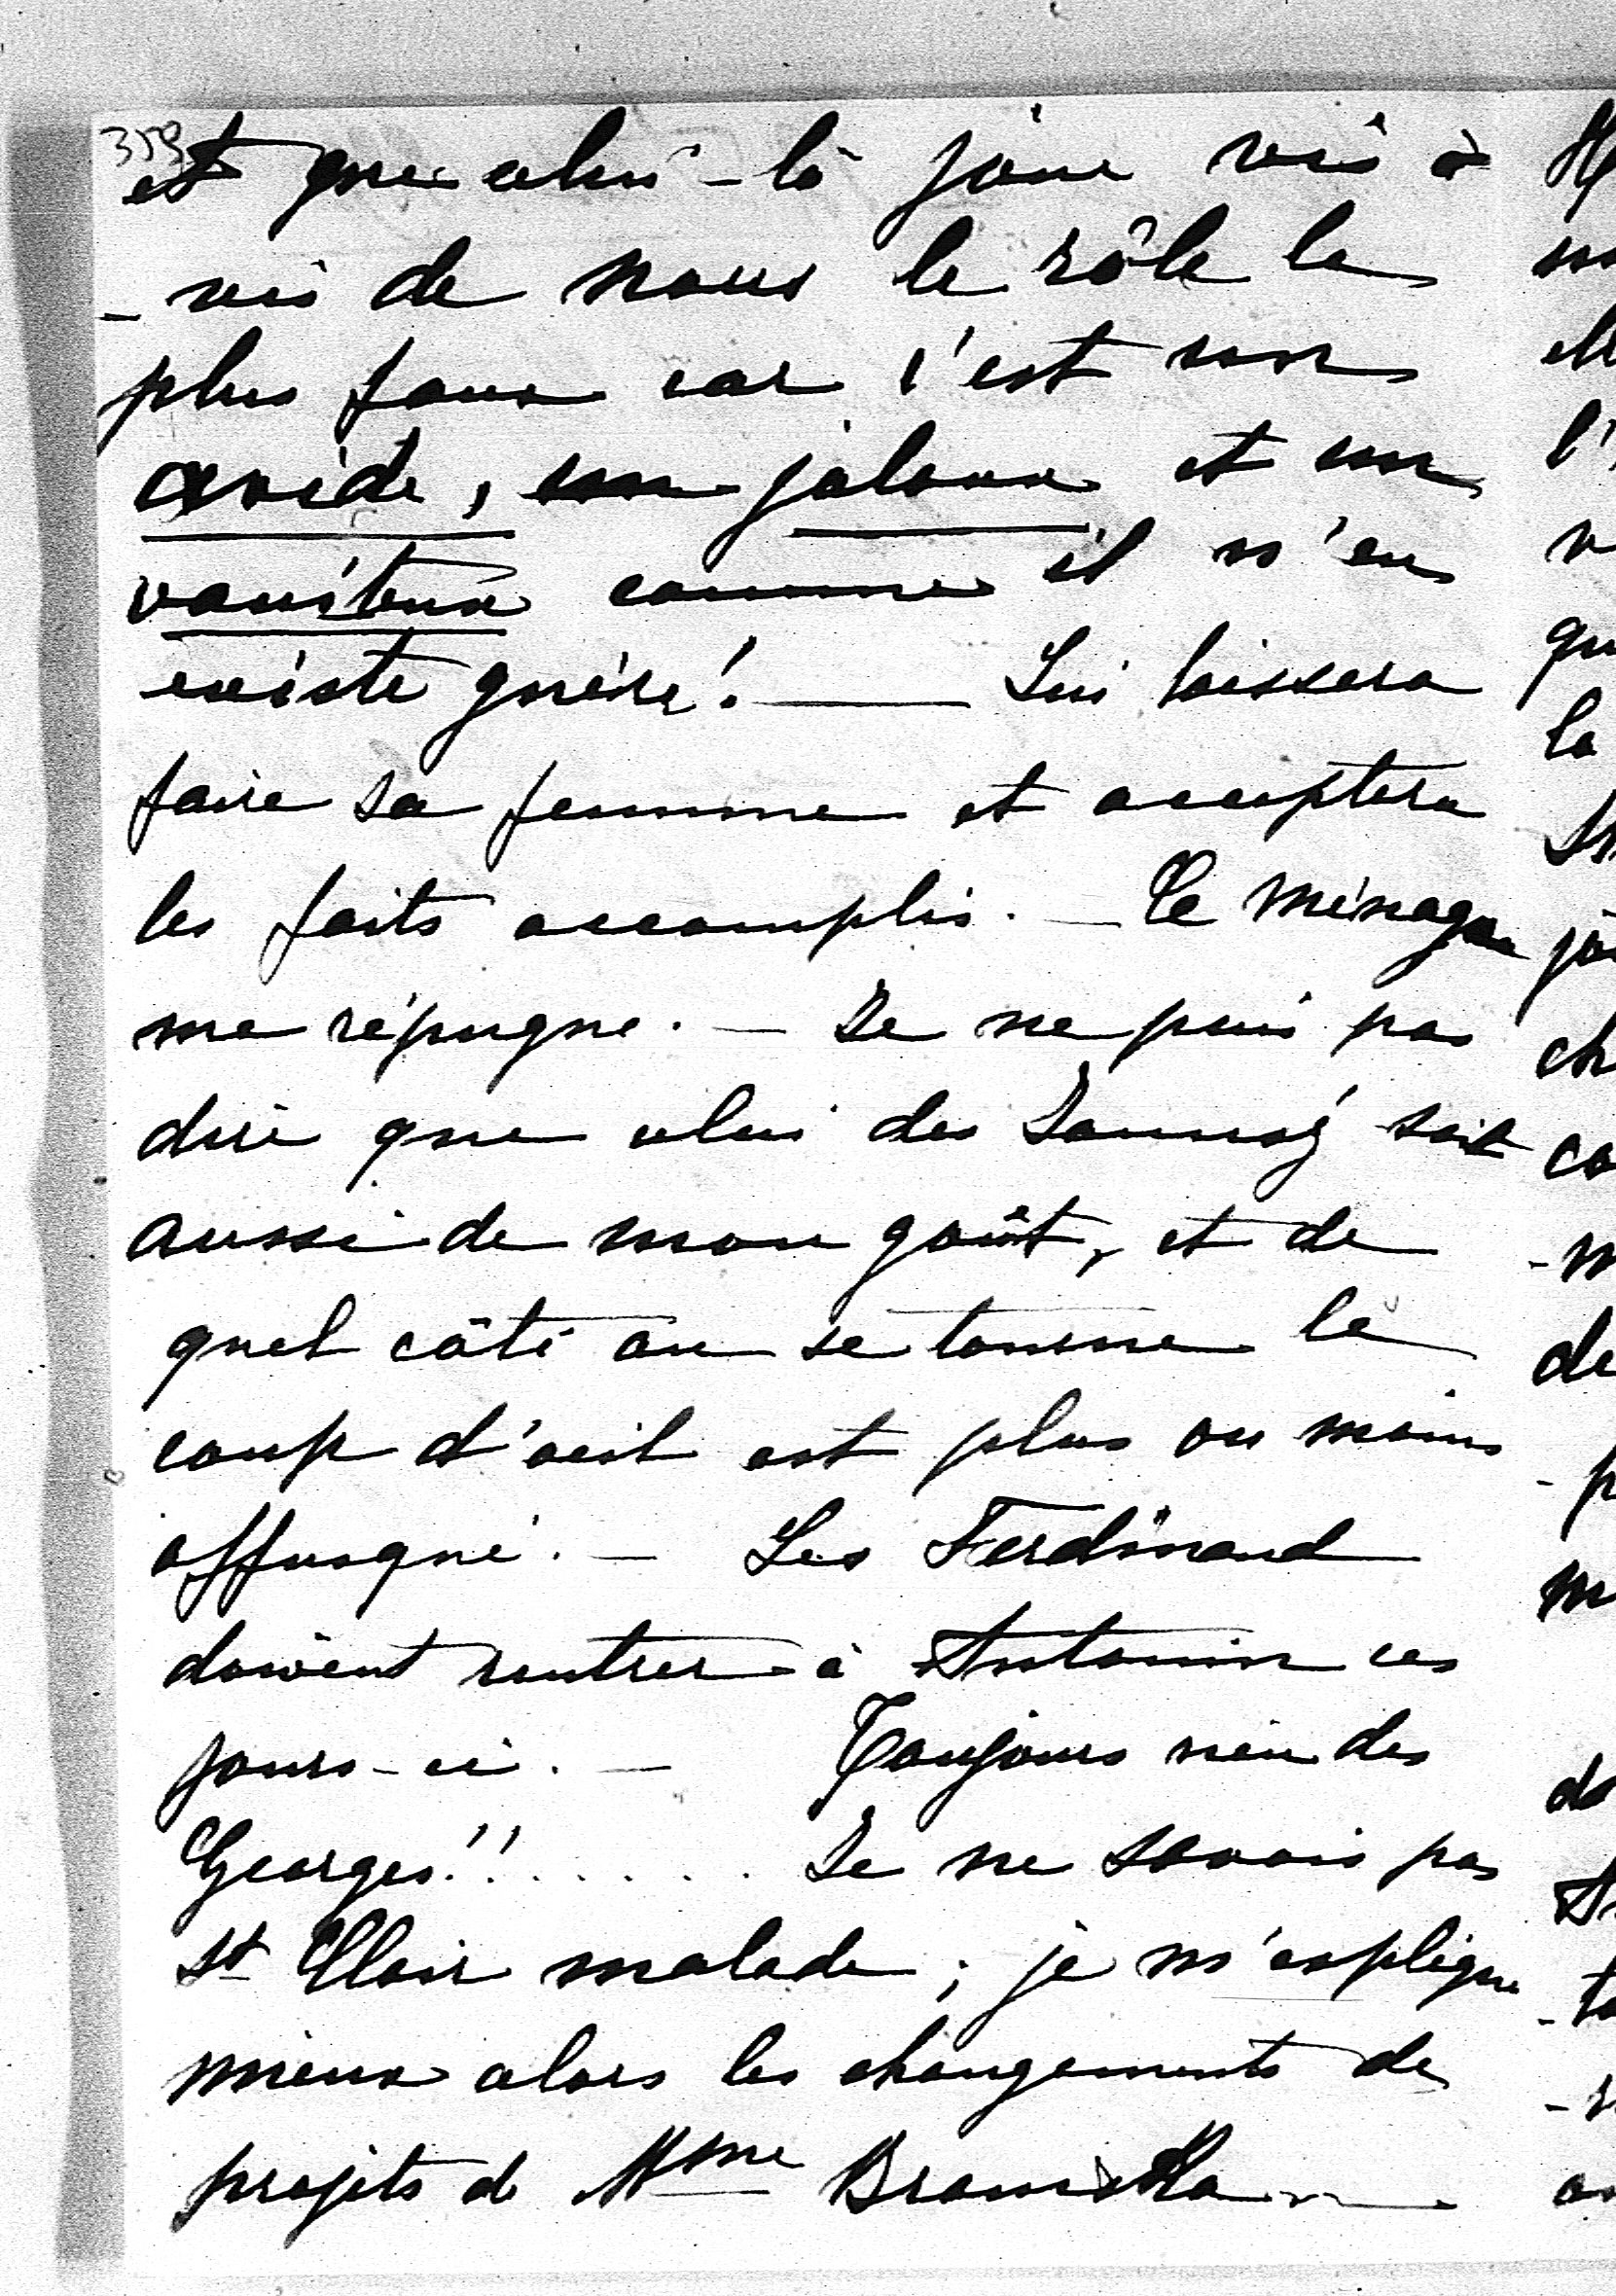 359
et que celui-là joue vis à
- vis de nous le rôle le
plus faux car c'est un
avide, un jaloux et un
vaniteux comme il n'en
existe guère! — Lui laissera
faire sa femme et acceptera
les faits accomplis. — Ce ménage
me répugne. — Je ne puis pas
dire que celui des soit
aussi de mon goût, et de
quel côté on se tourne le
coup d'oeil est plus ou moins
offusqué. — Les Ferdinand
doivent rentrer à Antonin ces
jours-ci. — Toujours rien des
Georges!! ....... Je ne savais pas
St Clair malade; je m'explique
mieux alors les changements de
projets de Mme